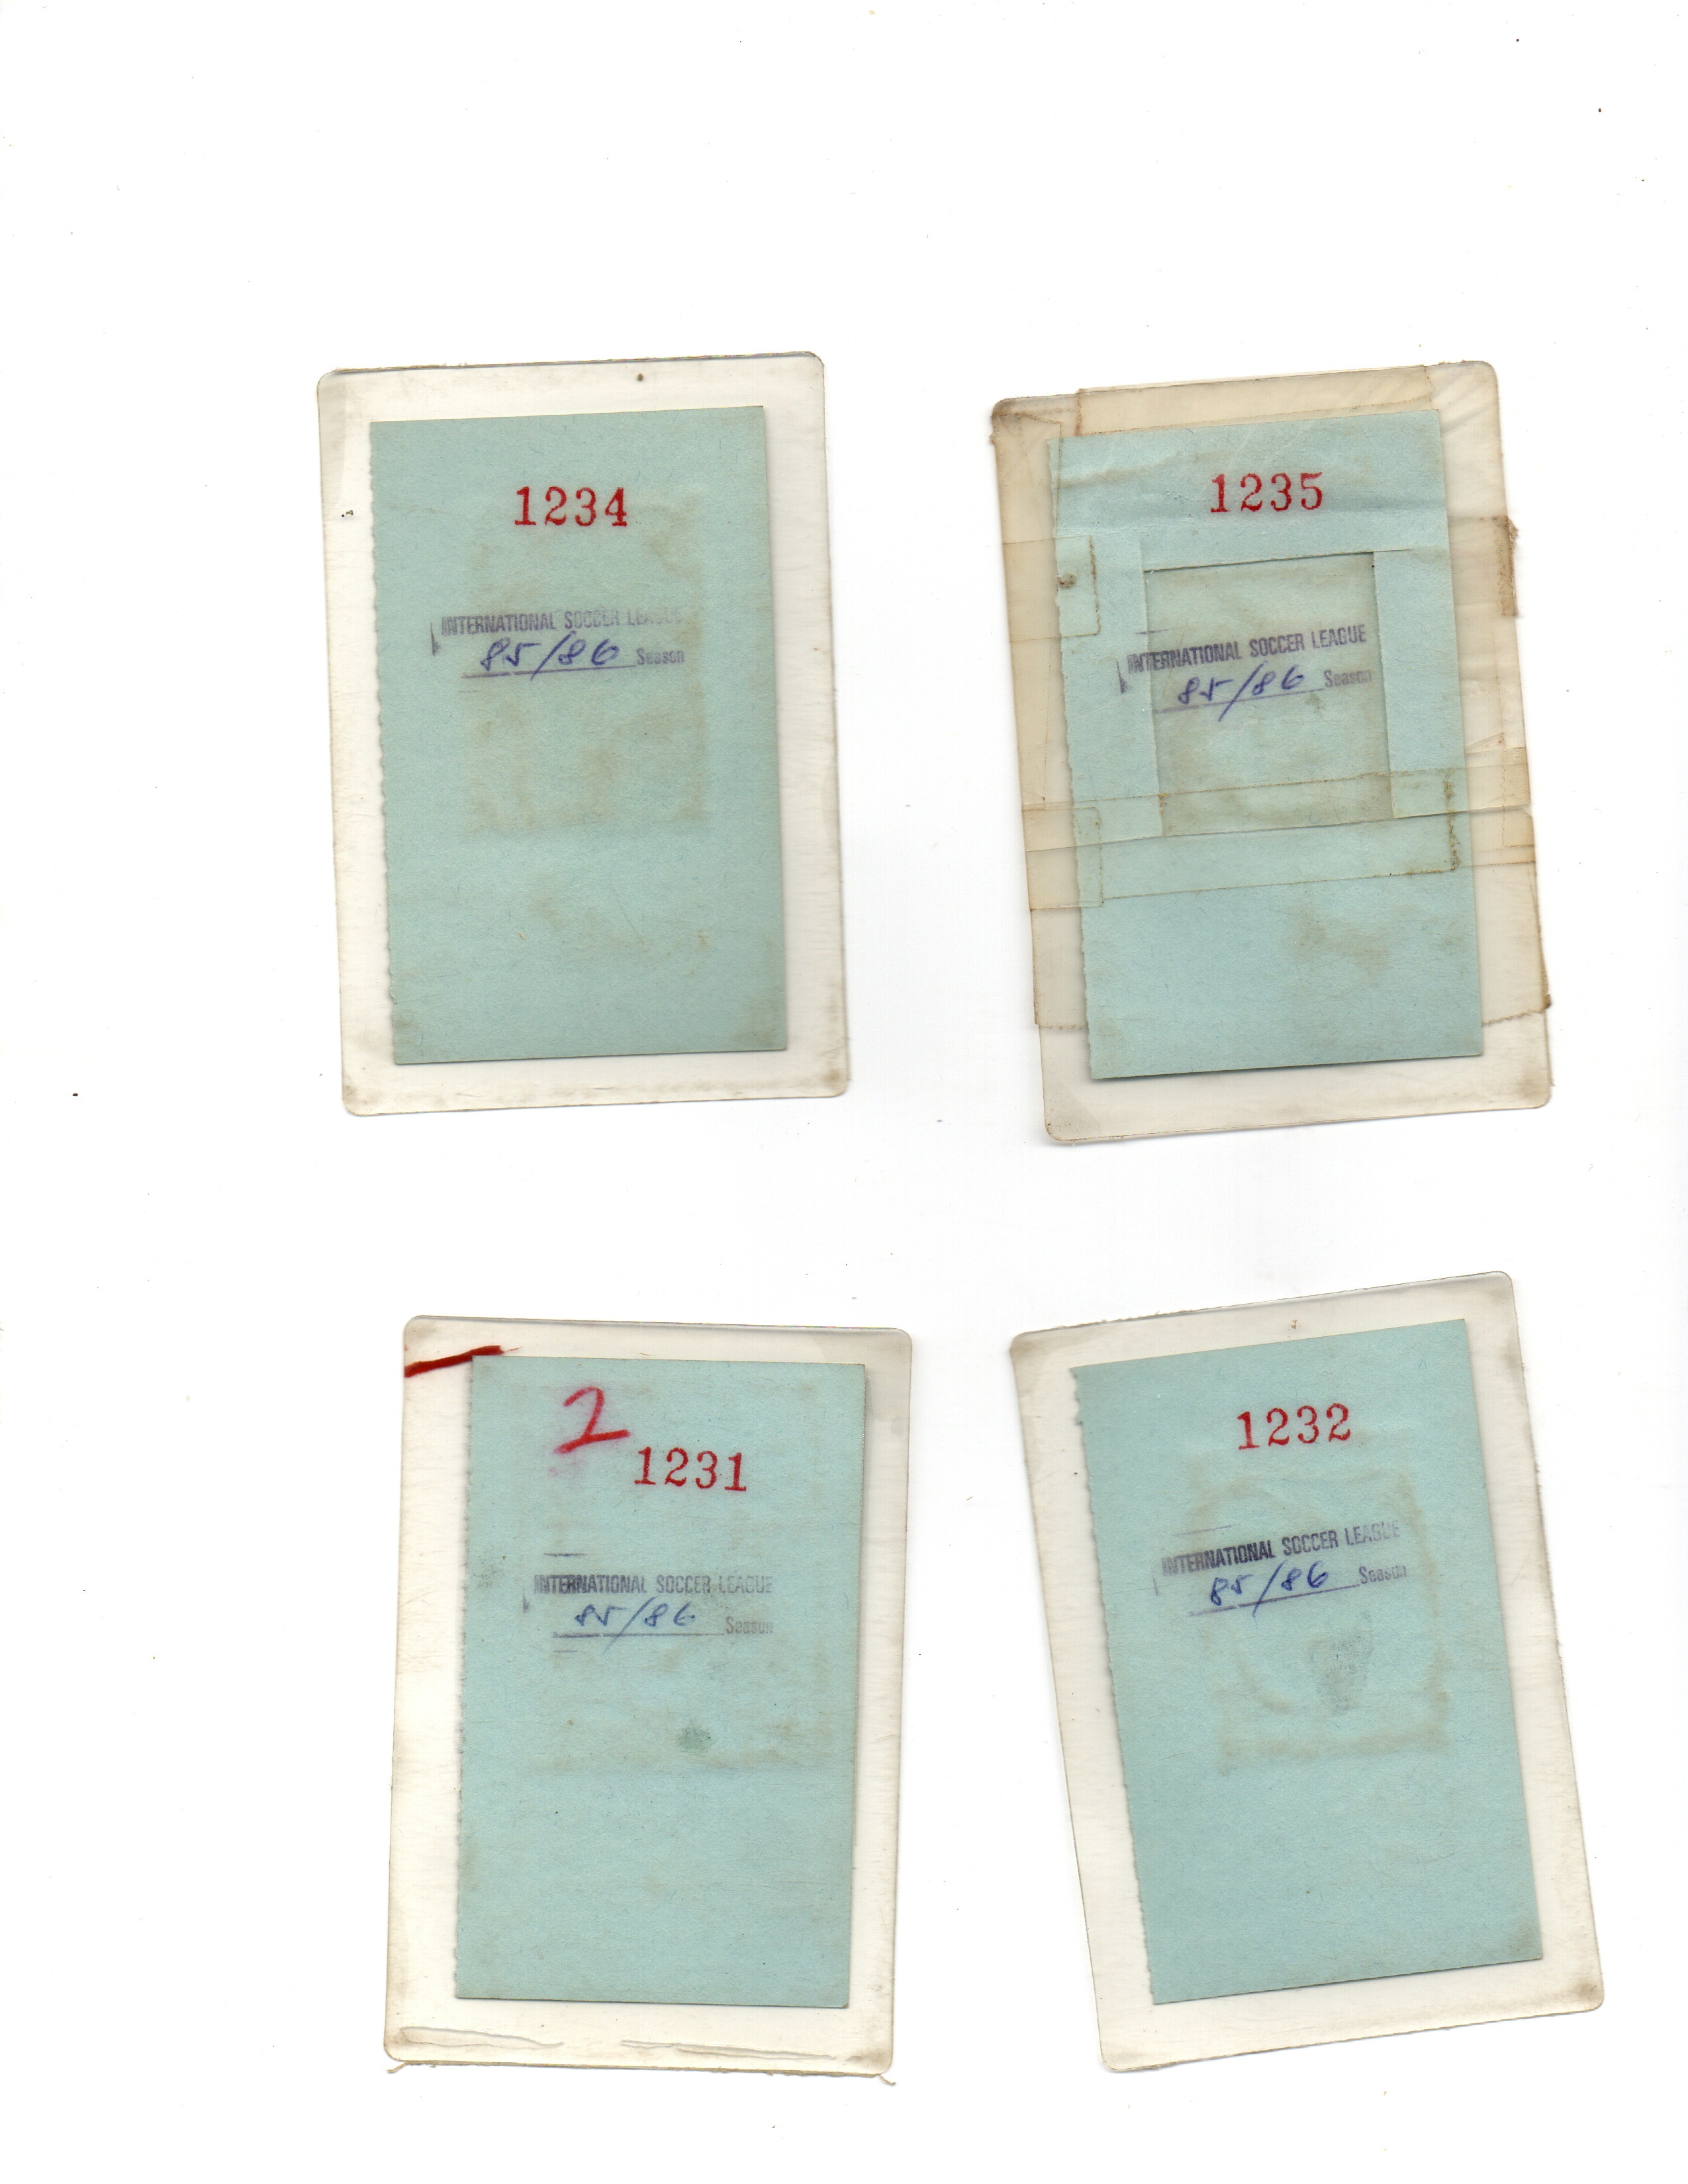 1234
INTERNATIONAL SOCCER LEAGUE
85/86 Season
1235
INTERNATIONAL SOCCER LEAGUE
85/86 Season
2
1231
INTERNATIONAL SOCCER LEAGUE
85/86 Season
1232
INTERNATIONAL SOCCER LEAGUE
85/86 Season